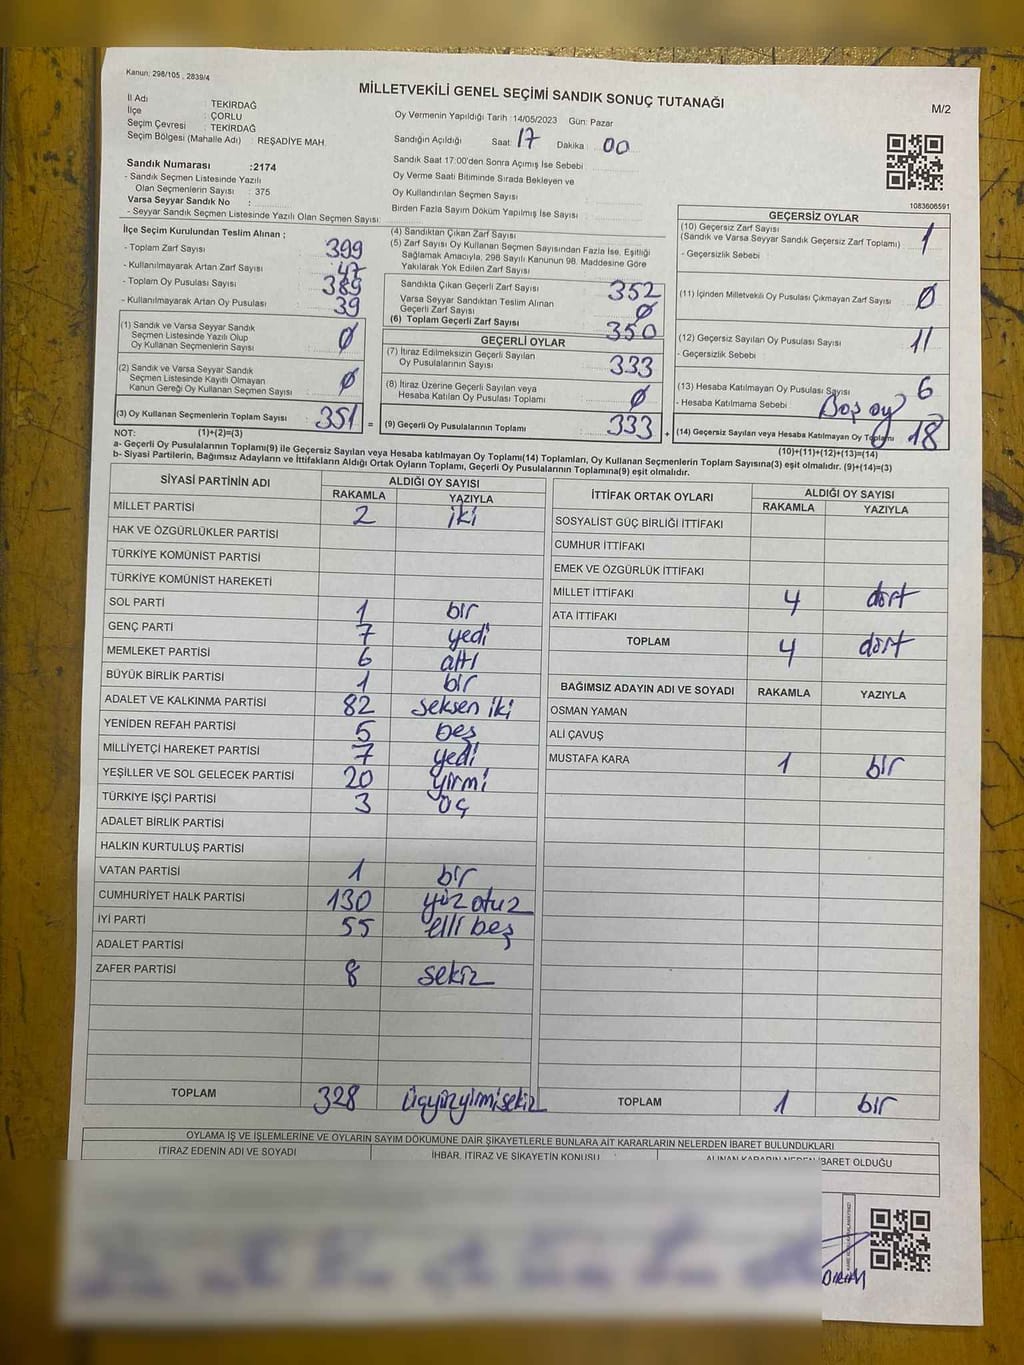 Kanun: 298/105 , 2839/4
MİLLETVEKİLİ GENEL SEÇİMİ SANDIK SONUÇ TUTANAĞI
M/2
İl Adı : TEKİRDAĞ
İlçe : ÇORLU
Seçim Çevresi : TEKİRDAĞ
Seçim Bölgesi (Mahalle Adı) : REŞADİYE MAH.
Oy Vermenin Yapıldığı Tarih :14/05/2023 Gün: Pazar
Sandığın Açıldığı Saat: 17 Dakika : 00
Sandık Saat 17:00'den Sonra Açımış İse Sebebi
Oy Verme Saati Bitiminde Sırada Bekleyen ve
Oy Kullandırılan Seçmen Sayısı
Birden Fazla Sayım Döküm Yapılmış İse Sayısı
Sandık Numarası :2174
- Sandık Seçmen Listesinde Yazılı
Olan Seçmenlerin Sayısı : 375
Varsa Seyyar Sandık No :
- Seyyar Sandık Seçmen Listesinde Yazılı Olan Seçmen Sayısı
1083606591
İlçe Seçim Kurulundan Teslim Alınan ;
- Toplam Zarf Sayısı 399
- Kullanılmayarak Artan Zarf Sayısı 47
- Toplam Oy Pusulası Sayısı 389
- Kullanılmayarak Artan Oy Pusulası 39
(1) Sandık ve Varsa Seyyar Sandık
Seçmen Listesinde Yazılı Olup
Oy Kullanan Seçmenlerin Sayısı Ø
(2) Sandık ve Varsa Seyyar Sandık
Seçmen Listesinde Kayıtlı Olmayan
Kanun Gereği Oy Kullanan Seçmen Sayısı Ø
(3) Oy Kullanan Seçmenlerin Toplam Sayısı 351 =
(1)+(2)=(3)
(4) Sandıktan Çıkan Zarf Sayısı
(5) Zarf Sayısı Oy Kullanan Seçmen Sayısından Fazla İse, Eşitliği
Sağlamak Amacıyla, 298 Sayılı Kanunun 98. Maddesine Göre
Yakılarak Yok Edilen Zarf Sayısı
Sandıkta Çıkan Geçerli Zarf Sayısı 352
Varsa Seyyar Sandıktan Teslim Alınan
Geçerli Zarf Sayısı Ø
(6) Toplam Geçerli Zarf Sayısı 350
GEÇERLİ OYLAR
(7) İtiraz Edilmeksizin Geçerli Sayılan
Oy Pusulalarının Sayısı 333
(8) İtiraz Üzerine Geçerli Sayılan veya
Hesaba Katılan Oy Pusulası Toplamı Ø
(9) Geçerli Oy Pusulalarının Toplamı 333 +
GEÇERSİZ OYLAR
(10) Geçersiz Zarf Sayısı
(Sandık ve Varsa Seyyar Sandık Geçersiz Zarf Toplamı) 1
- Geçersizlik Sebebi
(11) İçinden Milletvekili Oy Pusulası Çıkmayan Zarf Sayısı Ø
(12) Geçersiz Sayılan Oy Pusulası Sayısı 11
- Geçersizlik Sebebi
(13) Hesaba Katılmayan Oy Pusulası Sayısı 6
- Hesaba Katılmama Sebebi Boş oy
(14) Geçersiz Sayılan veya Hesaba Katılmayan Oy Toplamı 18
(10)+(11)+(12)+(13)=(14)
NOT:
a- Geçerli Oy Pusulalarının Toplamı(9) ile Geçersiz Sayılan veya Hesaba katılmayan Oy Toplamı(14) Toplamları, Oy Kullanan Seçmenlerin Toplam Sayısına(3) eşit olmalıdır. (9)+(14)=(3)
b- Siyasi Partilerin, Bağımsız Adayların ve İttifakların Aldığı Ortak Oyların Toplamı, Geçerli Oy Pusulalarının Toplamına(9) eşit olmalıdır.
SİYASİ PARTİNİN ADI ALDIĞI OY SAYISI
RAKAMLA YAZIYLA
MİLLET PARTİSİ 2 iki
HAK VE ÖZGÜRLÜKLER PARTİSİ
TÜRKİYE KOMÜNİST PARTİSİ
TÜRKİYE KOMÜNİST HAREKETİ
SOL PARTİ 1 bir
GENÇ PARTİ 7 yedi
MEMLEKET PARTİSİ 6 altı
BÜYÜK BİRLİK PARTİSİ 1 bir
ADALET VE KALKINMA PARTİSİ 82 seksen iki
YENİDEN REFAH PARTİSİ 5 beş
MİLLİYETÇİ HAREKET PARTİSİ 7 yedi
YEŞİLLER VE SOL GELECEK PARTİSİ 20 yirmi
TÜRKİYE İŞÇİ PARTİSİ 3 üç
ADALET BİRLİK PARTİSİ
HALKIN KURTULUŞ PARTİSİ
VATAN PARTİSİ 1 bir
CUMHURİYET HALK PARTİSİ 130 yüz otuz
İYİ PARTİ 55 elli beş
ADALET PARTİSİ
ZAFER PARTİSİ 8 sekiz
TOPLAM 328 üçyüzyirmisekiz
İTTİFAK ORTAK OYLARI ALDIĞI OY SAYISI
RAKAMLA YAZIYLA
SOSYALİST GÜÇ BİRLİĞİ İTTİFAKI
CUMHUR İTTİFAKI
EMEK VE ÖZGÜRLÜK İTTİFAKI
MİLLET İTTİFAKI 4 dört
ATA İTTİFAKI
TOPLAM 4 dört
BAĞIMSIZ ADAYIN ADI VE SOYADI RAKAMLA YAZIYLA
OSMAN YAMAN
ALİ ÇAVUŞ
MUSTAFA KARA 1 bir
TOPLAM 1 bir
OYLAMA İŞ VE İŞLEMLERİNE VE OYLARIN SAYIM DÖKÜMÜNE DAİR ŞİKAYETLERLE BUNLARA AİT KARARLARIN NELERDEN İBARET BULUNDUKLARI
İTİRAZ EDENİN ADI VE SOYADI İHBAR, İTİRAZ VE ŞİKAYETİN KONUSU ALINAN KARARIN NEDEN İBARET OLDUĞU